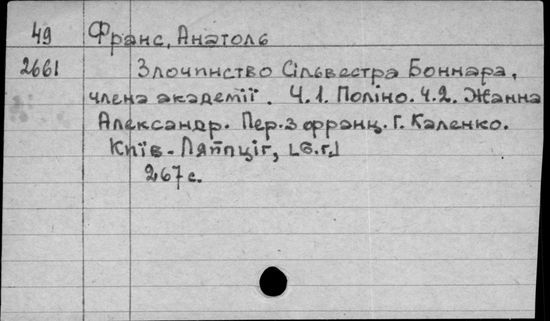 49 Франс, Анатоль
2661 Злочинство Сільвестра Боннара,
члена академії. Ч.1. Поліно. Ч.2. Жанна
Александр. Пер. з франц. Г. Каленко.
Київ-Ляйпціг, [б.г.]
267 с.